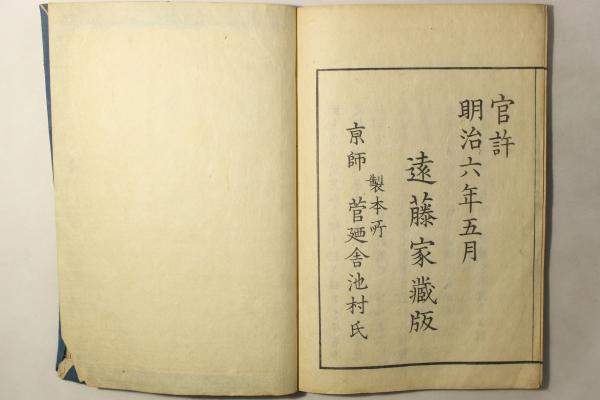 官許
明治六年五月
遠藤家蔵版
製本所
亰師 菅廼舎池村氏